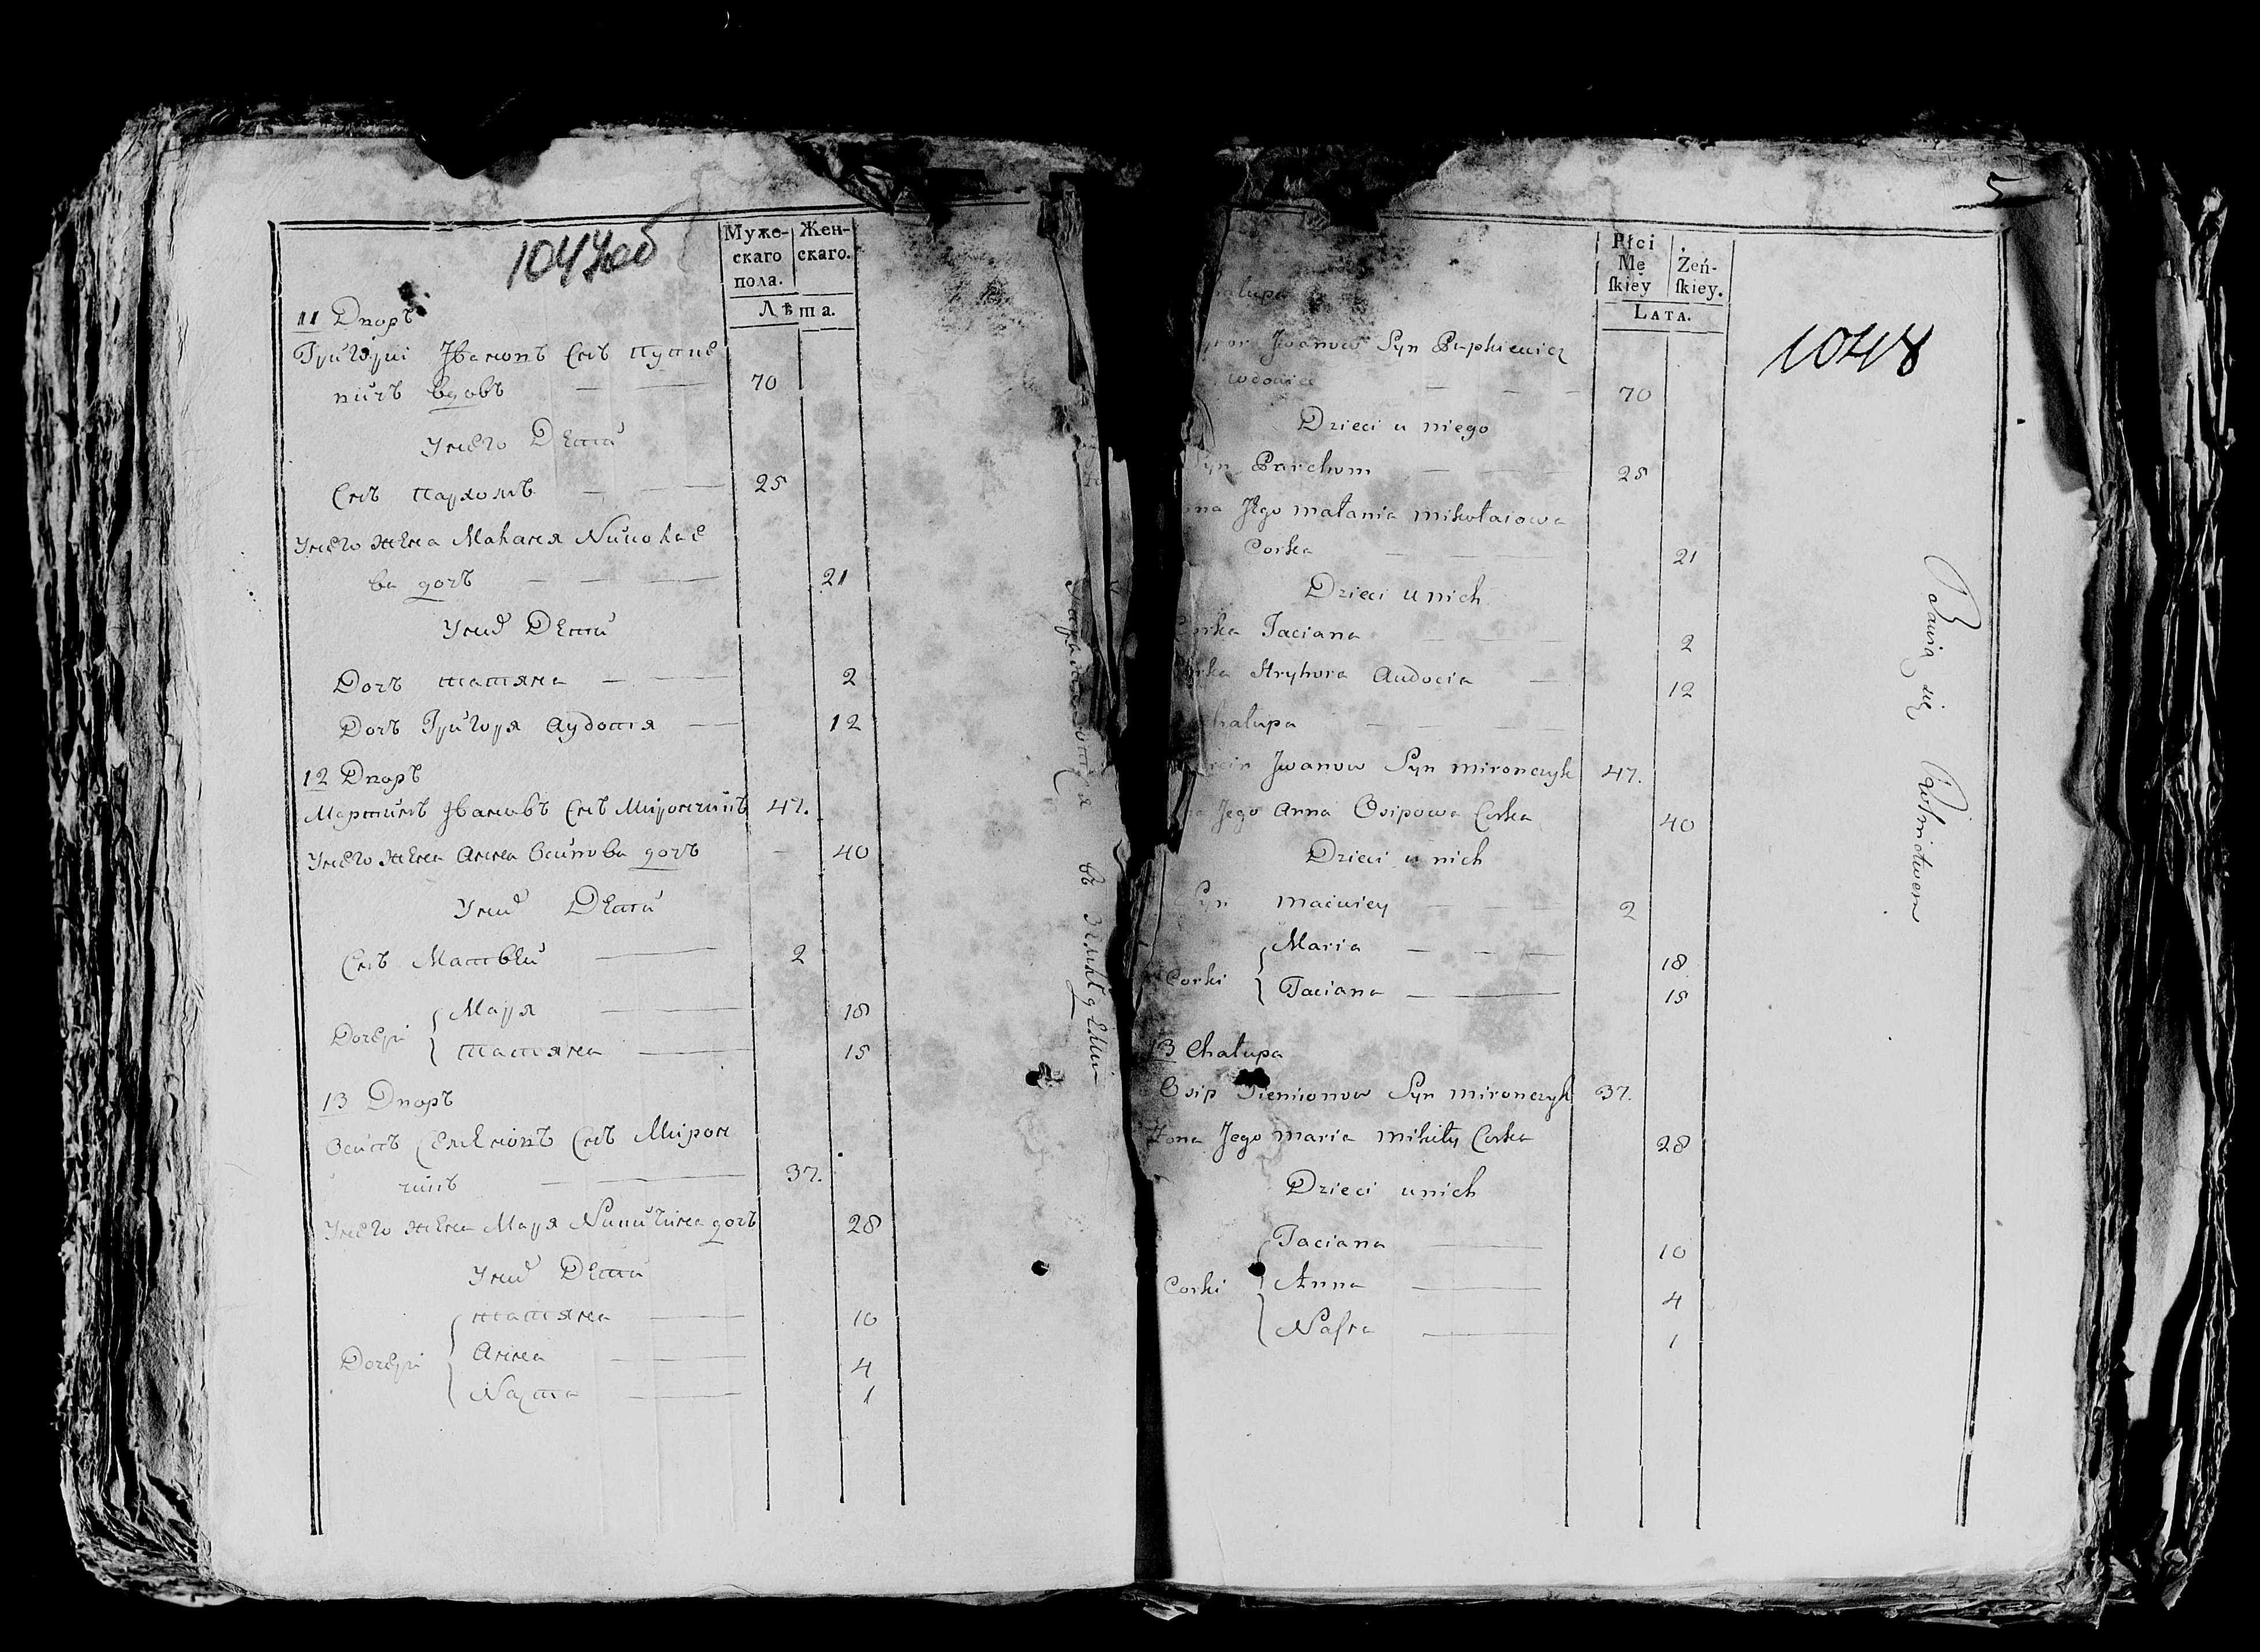 1047об
Муже- Жен-
скаго скаго.
пола.
Лѣта.
11 Дворъ
Григорій Ивановъ Снъ
вдовъ — — 70
У него Дети
Снъ Пархомъ — — 25
У него жена Маланя Николае
ва доч — — — 21
У них Дети
Доч татяна — — 2
Доч Григоря аудотя — 12
12 Дворъ
Мартинъ Ивановъ Снъ Мирончикъ 47.
У него жена Анна Осипова доч — 40
У них Дети
Снъ Матвей — 2
Дочери Маря — 18
татяна — 15
13 Дворъ
Осипъ Семеновъ Снъ Мирон
чикъ — — 37.
У него жена Маря Никитина доч 28
У них Дети
татяна — 10
Дочери Анна — 4
Настя — 1
въ земледели
5
1048
Płci Żeń-
Mę ſkiey.
ſkiey
LATA.
ałupa
Jwanow Syn
wdowiec — — — 70
Dzieci u niego
Syn Parchom — — 25
ona Jego małania mikołaiowa
Corka — — 21
Dzieci u nich
Corka Taciana — 2
orka Hryhora Audocia — 12
Chałupa — — —
rcin Jwanow Syn mironczyk 47.
na Jego anna Osipowa Corka 40
Dzieci u nich
Syn maciwiey — — 2
Maria — — — 18
Corki Taciana — — 15
13 Chałupa
Osip Siemionow Syn mironczyk 37.
Żona Jego maria mikity Corka 28
Dzieci u nich
Taciana — 10
Corki Anna — 4
Nasta — 1
Bawią się Rolnictwem